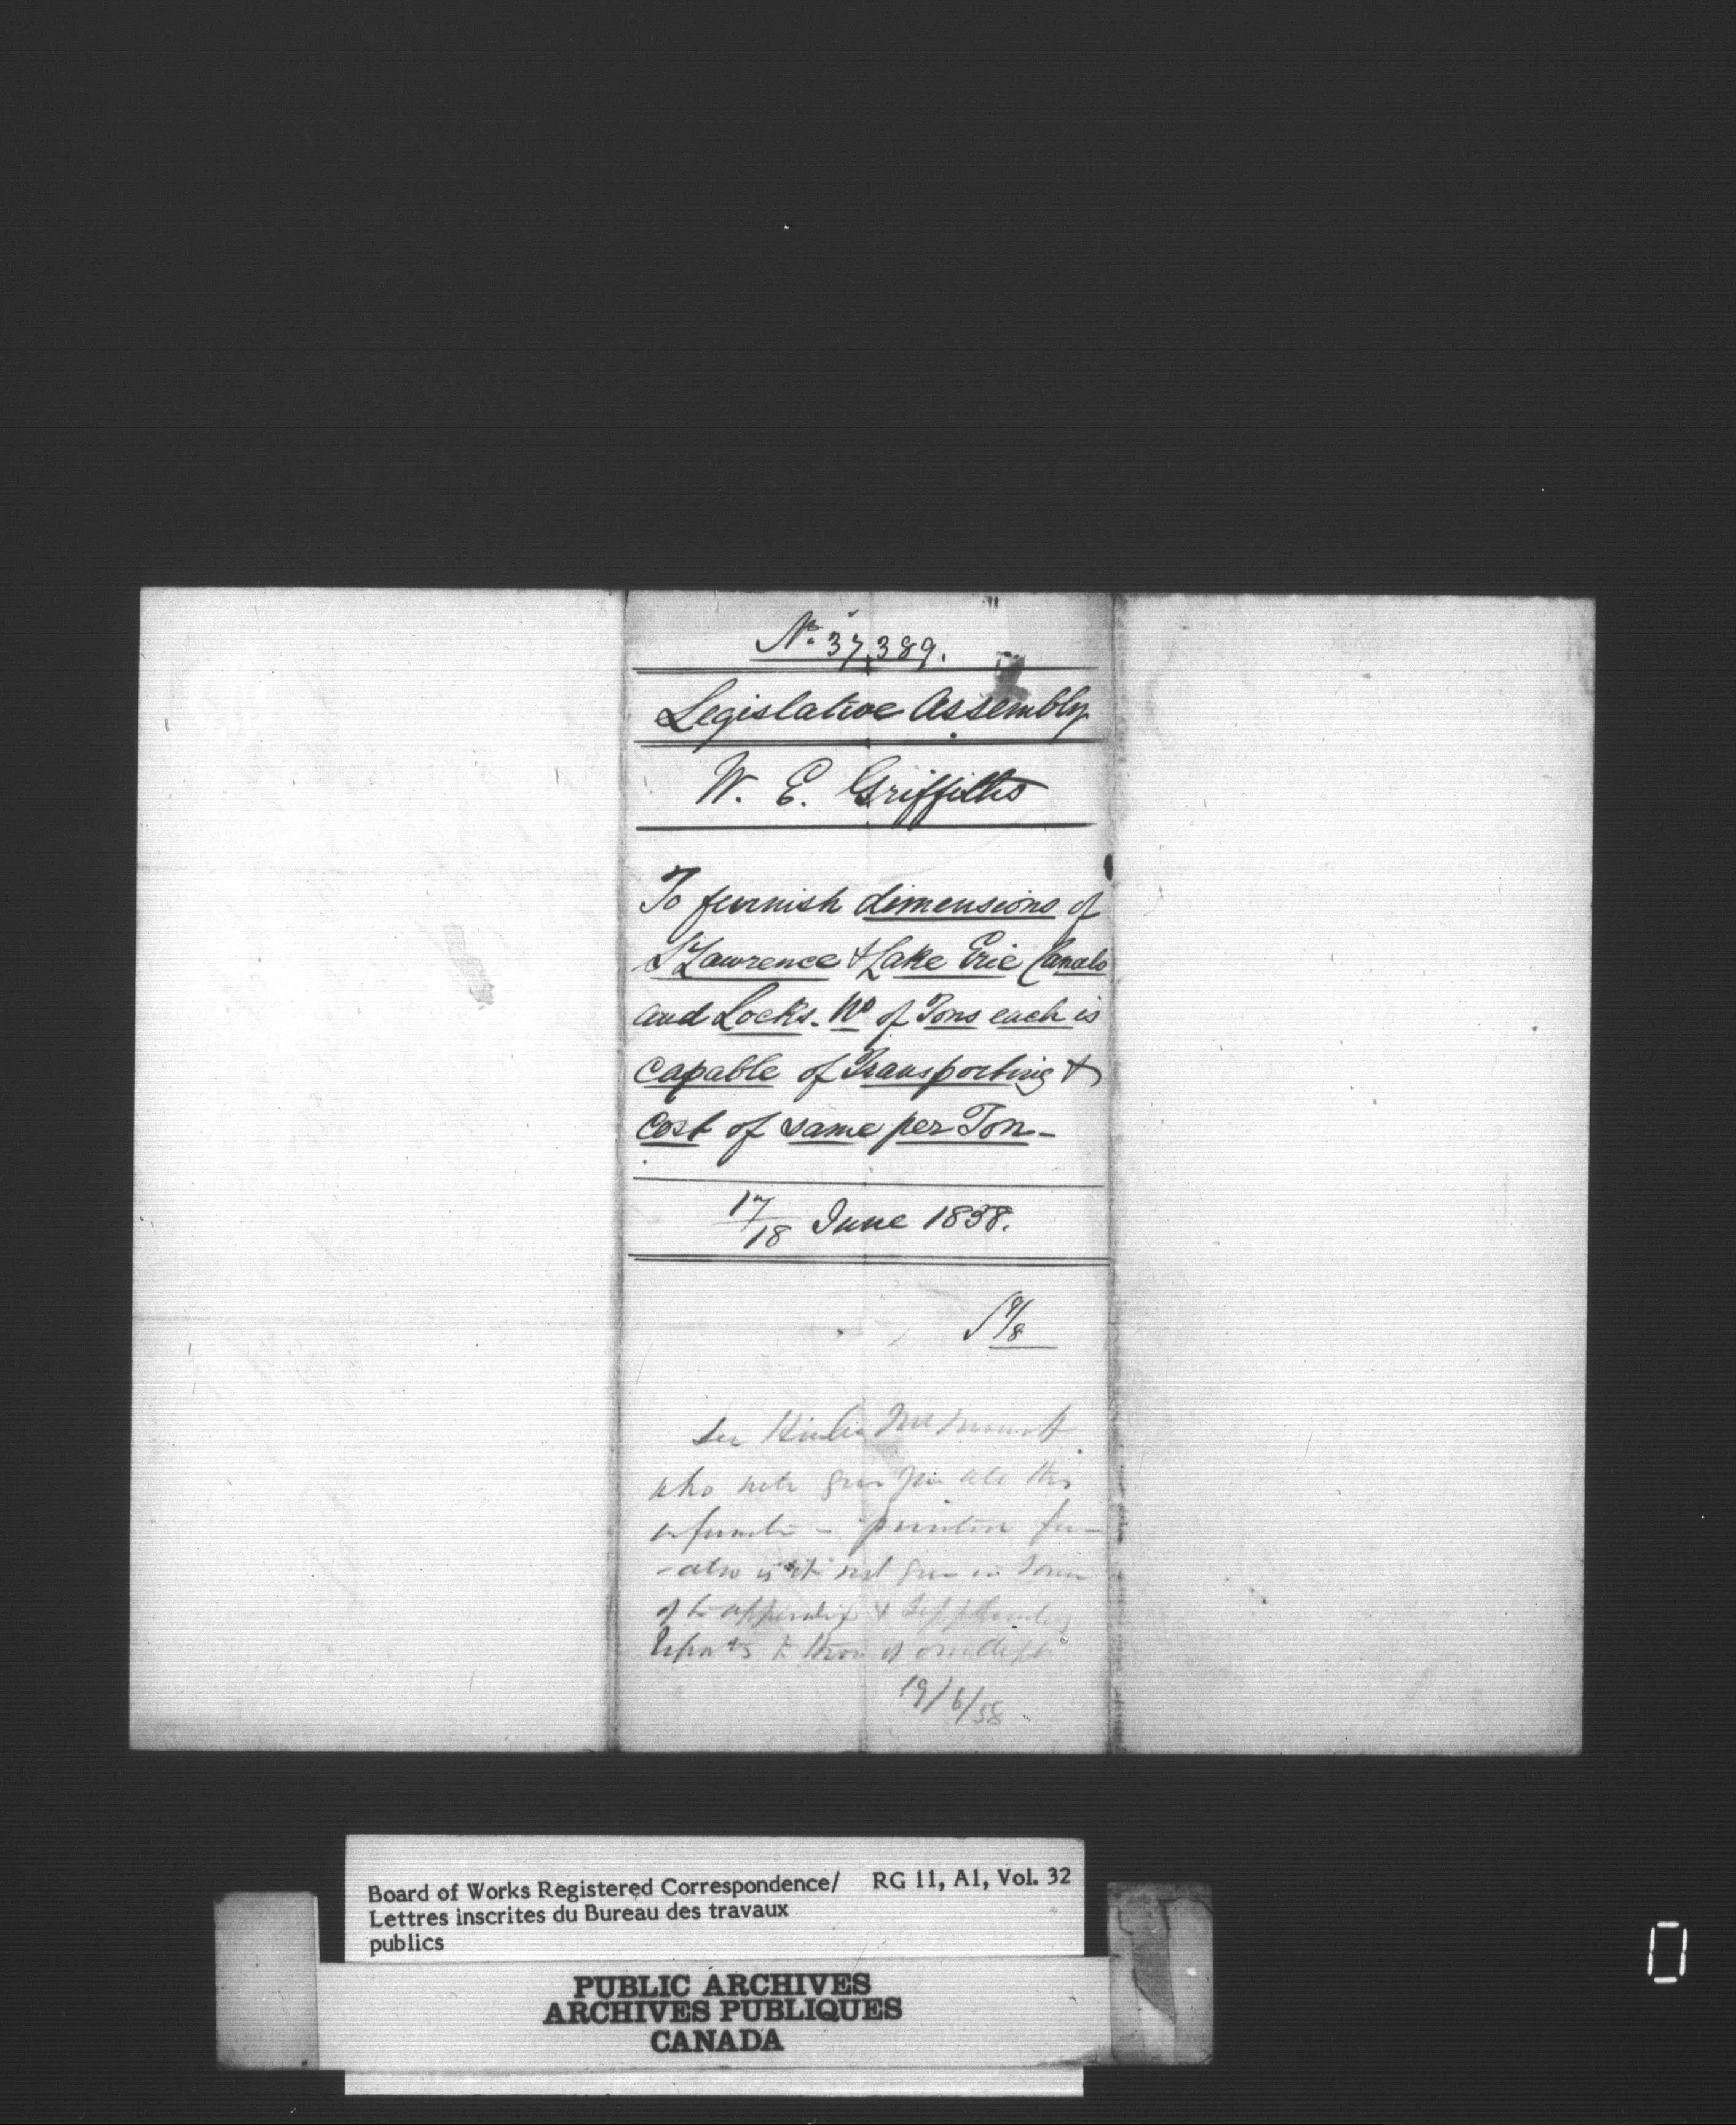 No. 37,389.
Legislative Assembly
W. E. Griffiths
To furnish dimensions of
St Lawrence & Lake Erie Canals
and Locks. No of Tons each is
capable of Transporting &
Cost of same per Ton -
17/18 June 1858.
who give you all this
- also is it not given in some
of the appendix &
Reports to those of our dept
19/6/58
Board of Works Registered Correspondence/ RG 11, A1, Vol. 32
Lettres inscrites du Bureau des travaux
publics
PUBLIC ARCHIVES
ARCHIVES PUBLIQUES
CANADA